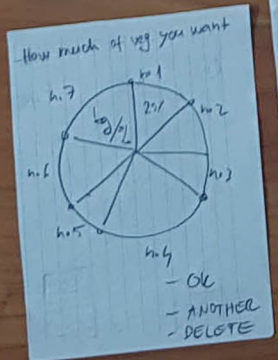 How much of veg you want
n.1
n.7
2%
n.2
kg/%
n.6
n.3
n.5
n.4
- OK
- ANOTHER
- DELETE